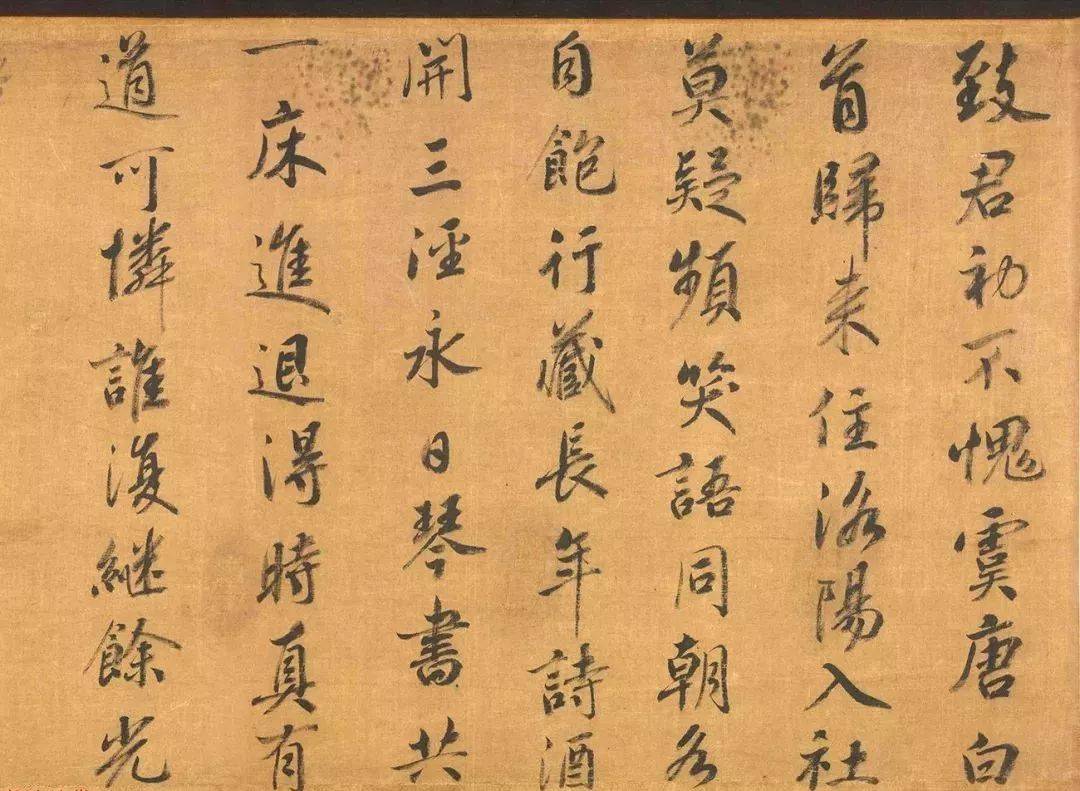 致君初不愧虞唐白
首歸来住洛陽入社
莫疑頻笑語同朝各
自飽行藏長年詩酒
開三淫永日琴書共
一床進退得時真有
道可憐誰復継餘光